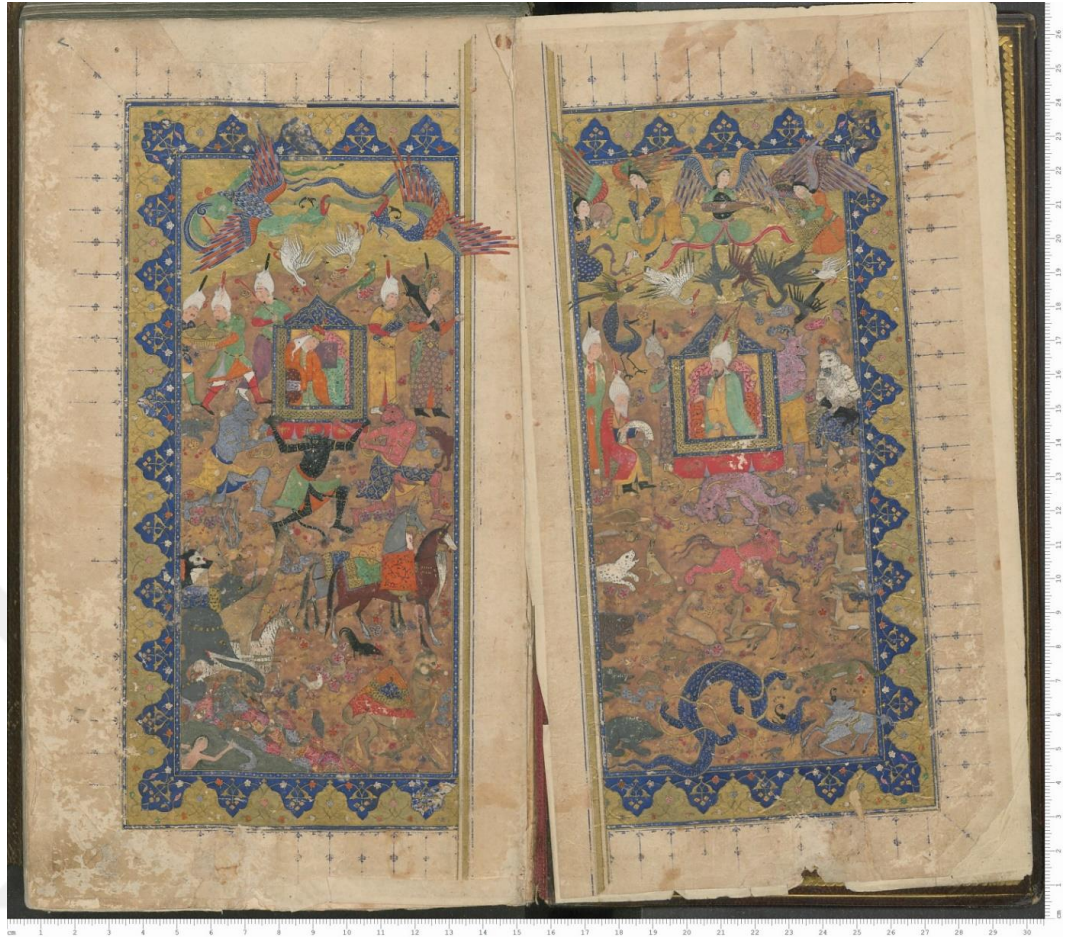 cm 1 2 3 4 5 6 7 8 9 10 11 12 13 14 15 16 17 18 19 20 21 22 23 24 25 26
cm 1 2 3 4 5 6 7 8 9 10 11 12 13 14 15 16 17 18 19 20 21 22 23 24 25 26 27 28 29 30